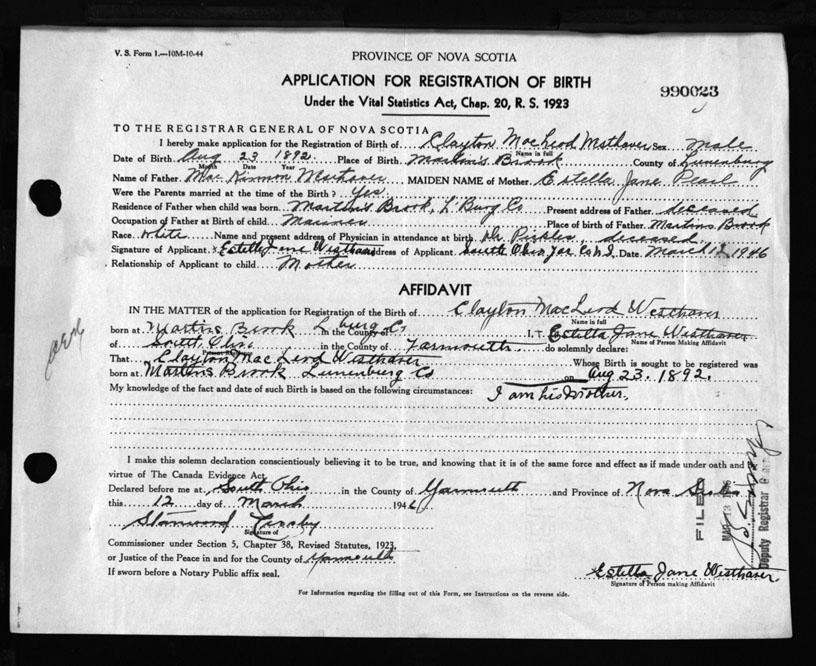 V. S. Form 1.—10M-10-44
PROVINCE OF NOVA SCOTIA
APPLICATION FOR REGISTRATION OF BIRTH
990023
Under the Vital Statistics Act, Chap. 20, R. S. 1923
TO THE REGISTRAR GENERAL OF NOVA SCOTIA
I hereby make application for the Registration of Birth of Clayton MacLeod Westhaver Sex male
Name in full
Date of Birth Aug 23 1892. Place of Birth Martins Brook County of Lunenburg
Month Date Year
Name of Father MacKinnon Westhaver MAIDEN NAME of Mother Estella Jane Pearl
Were the Parents married at the time of the Birth? Yes
Residence of Father when child was born Martins Brook, L'Burg Co Present address of Father deceased
Occupation of Father at Birth of child Mariner Place of birth of Father Martins Brook
Race white Name and present address of Physician in attendance at birth Dr Pickles, deceased
Signature of Applicant x Estella Jane Westhaver Address of Applicant South Ohio Yar Co N.S. Date March 12 1946
Relationship of Applicant to child Mother
AFFIDAVIT
IN THE MATTER of the application for Registration of the Birth of Clayton MacLeod Westhaver
Name in full
born at Martins Brook in the County of L burg Co I, Estella Jane Westhaver
Name of Person Making Affidavit
of South Ohio in the County of Yarmouth do solemnly declare:
That Clayton MacLeod Westhaver Whose Birth is sought to be registered was
born at Martins Brook Lunenburg Co on Aug 23. 1892.
My knowledge of the fact and date of such Birth is based on the following circumstances: I am his Mother.
I make this solemn declaration conscientiously believing it to be true, and knowing that it is of the same force and effect as if made under oath and in
virtue of The Canada Evidence Act.
Declared before me at South Ohio in the County of Yarmouth and Province of Nova Scotia
this 12 day of March 1946
Stanwood
Signature of
Commissioner under Section 5, Chapter 38, Revised Statutes, 1923,
or Justice of the Peace in and for the County of Yarmouth
If sworn before a Notary Public affix seal.
Estella Jane Westhaver
Signature of Person making Affidavit
For Information regarding the filling out of this Form, see Instructions on the reverse side.
FILED
Deputy Registrar